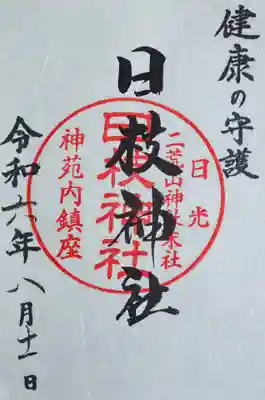 健康の守護
日枝神社
日光
二荒山神社末社
日枝神社
神苑内鎮座
令和六年八月十一日